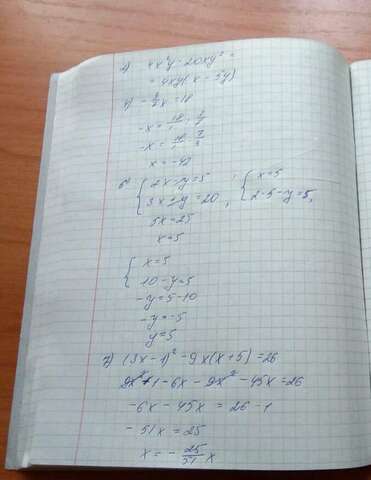 4x²y - 20xy² =
= 4xy(x - 5y)
x = -42
{ 2x - y = 5
3x + y = 20 , { x = 5
2·5 - y = 5,
5x = 25
x = 5
{ x = 5
10 - y = 5
-y = 5 - 10
-y = -5
y = 5
7) (3x - 1)² - 9x(x + 5) = 26
9x² + 1 - 6x - 9x² - 45x = 26
-6x - 45x = 26 - 1
-51x = 25
x = - 25/51 x